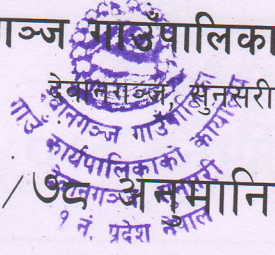 गञ्ज गाउँपालिका
देवानगञ्ज, सुनसरी
देवानगञ्ज गाउँपालिका
गाउँ कार्यपालिकाको कार्यालय
देवानगञ्ज, सुनसरी
१ नं. प्रदेश नेपाल
/७८ अनुमानि